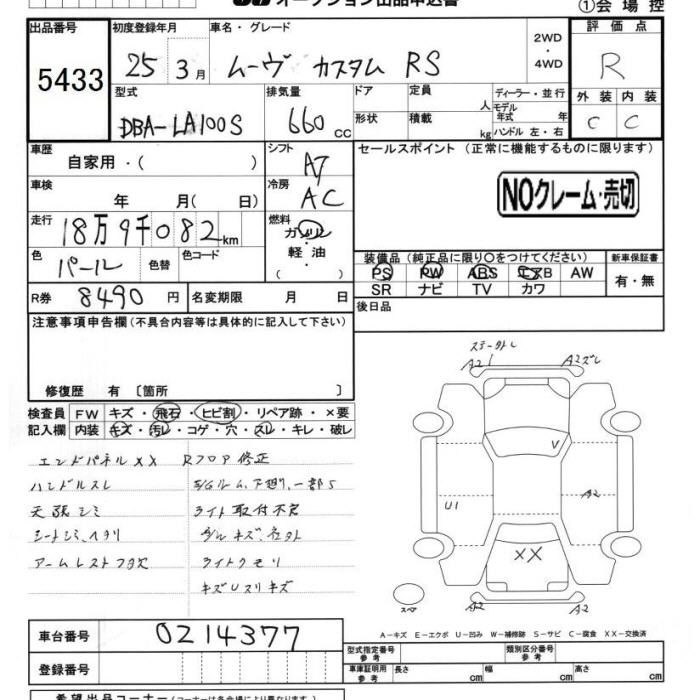 オークション出品申込書
①会 場 控
出品番号
5433
初度登録年月
25 3月
車名・グレード
ムーヴ カスタム RS
2WD
・
4WD
評 価 点
R
外 装 内 装
C C
型式
DBA-LA100S
排気量
660 CC
ドア
形状
定員 人
積載 kg
ディーラー・並行
モデル
年式 年
ハンドル 左・右
車歴
自家用・( )
シフト
A7
セールスポイント (正常に機能するものに限ります)
NOクレーム・売切
車検
年 月( 日)
冷房
AC
走行
18万9千082km
燃料
ガソリン
・
軽 油
( )
色
パール
色替
色コード
装備品(純正品に限り○をつけてください)
新車保証書
PS PW ABS エアB AW
SR ナビ TV カワ
有・無
R券
8490 円
名変期限 月 日
後日品
注意事項申告欄(不具合内容等は具体的に記入して下さい)
修復歴 有〔箇所 〕
検査員
記入欄
FW キズ・飛石・ヒビ割・リペア跡・×要
内装 キズ・汚レ・コゲ・穴・スレ・キレ・破レ
エンドパネルXX Rフロア修正
ハンドルスレ E/Gルーム、下廻り、一部S
天張シミ ライト取付不良
シートシミ、ヘタリ
アームレストフタ欠 ライトクモリ
キズUスリキズ
A2 A2ズレ
V
U1
A2
XX
スペア
A2 A2
A-キズ E-エクボ U-凹み W-補修跡 S-サビ C-腐食 XX-交換済
車台番号
0214377
登録番号
型式指定番号
参 考
類別区分番号
参 考
車庫証明用
参 考
長さ cm 幅 cm 高さ cm
希望出品コーナー(コーナーは各会場により異なります)